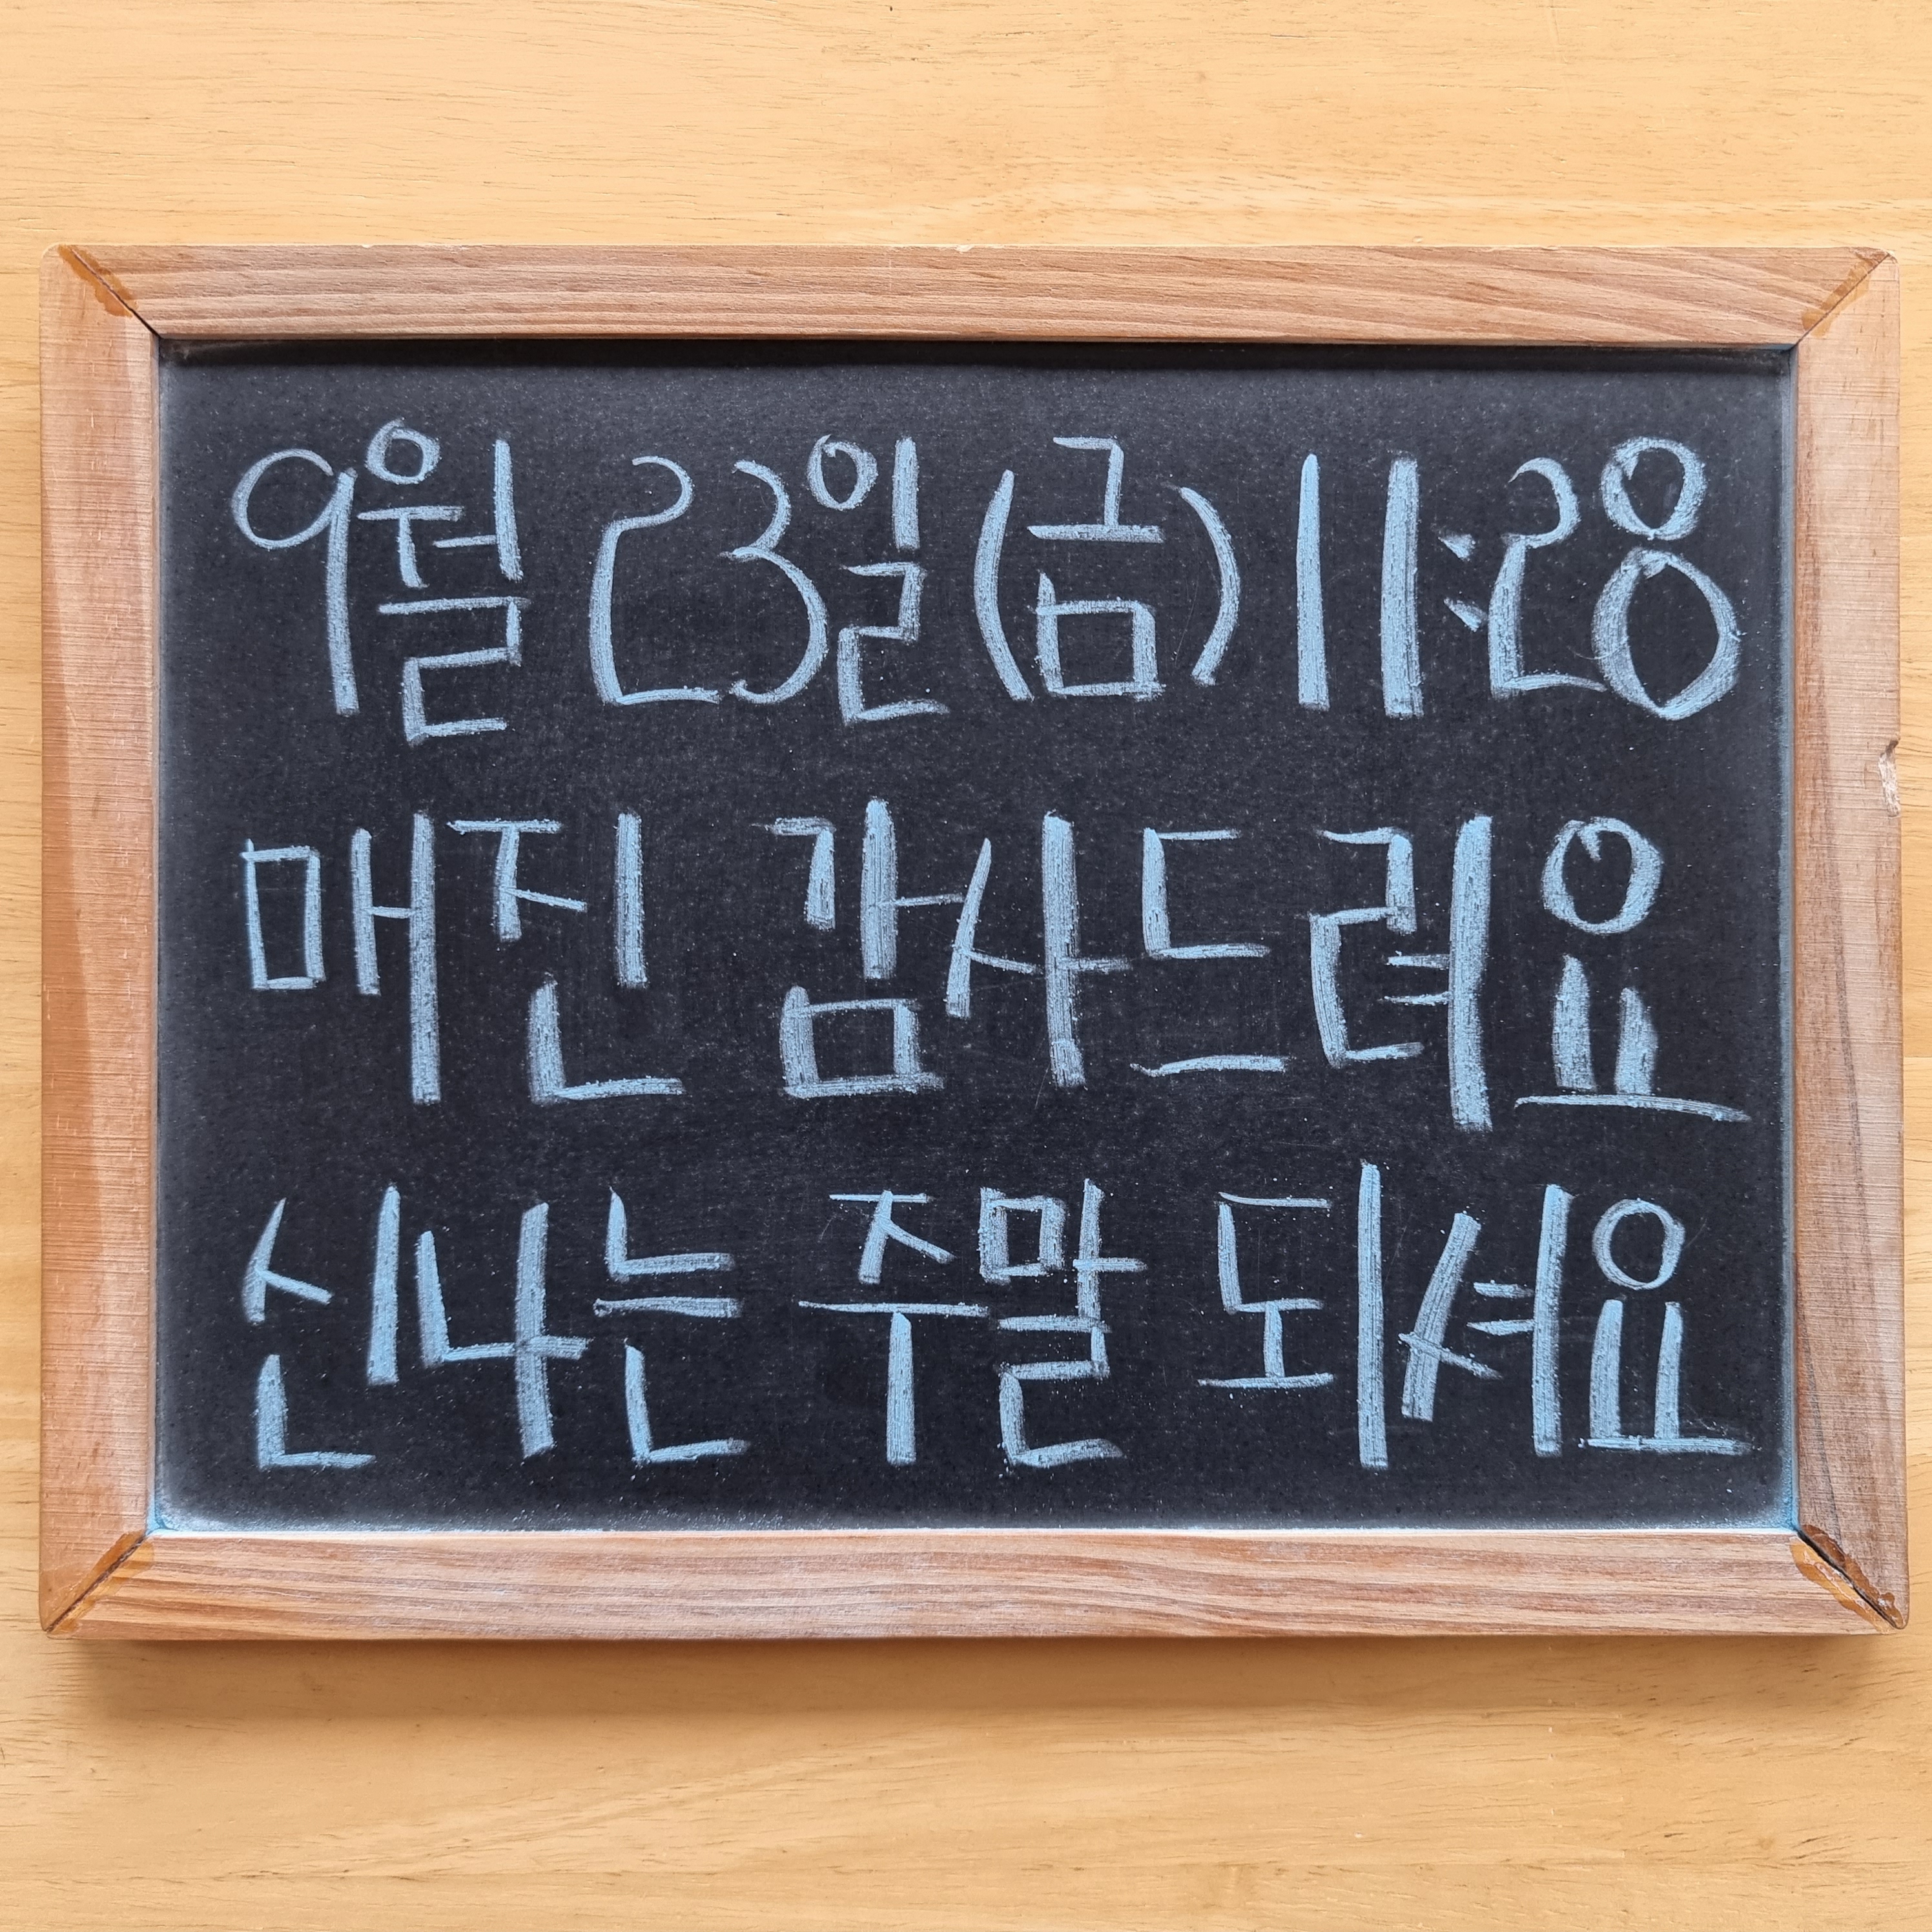 9월 23일(금) 11:28
매진 감사드려요
신나는 주말 되셔요